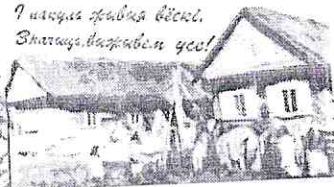 І пакуль жывыя вёскі.
Значыць, выжывем усе!